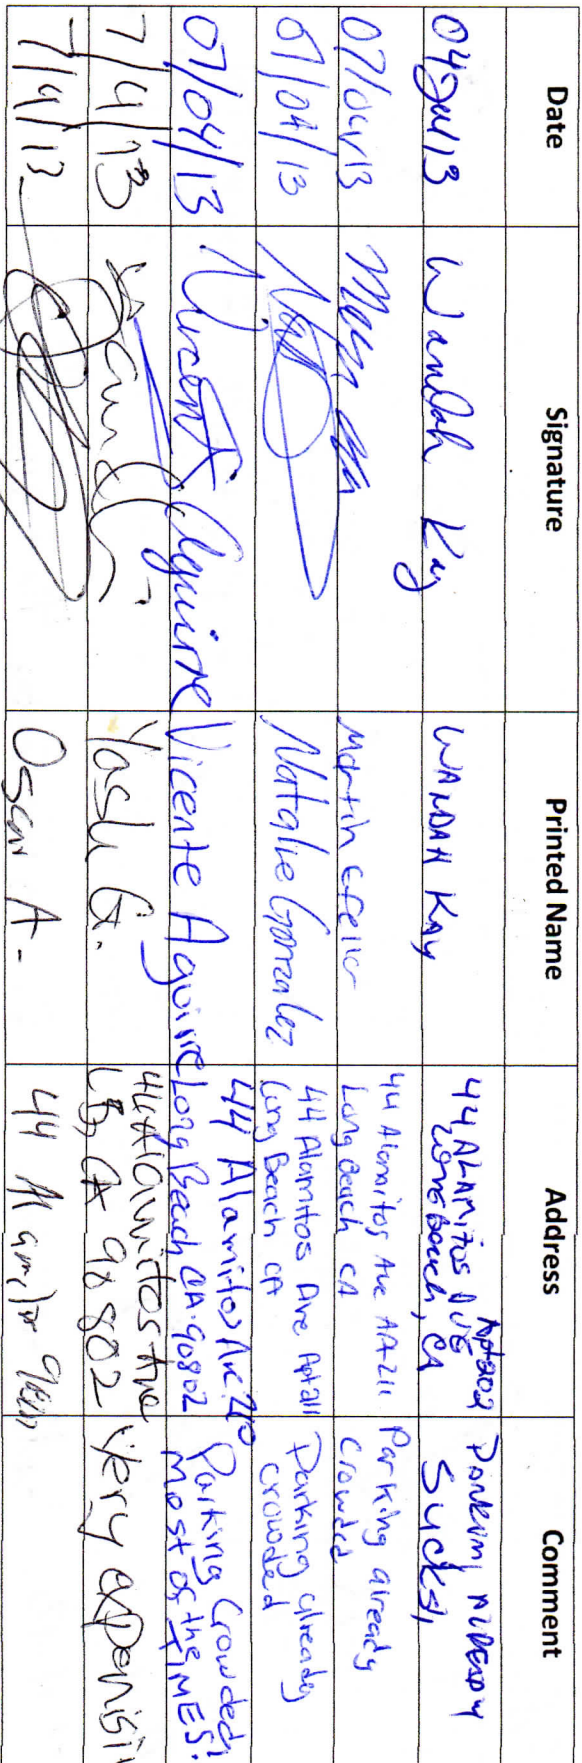 Date Signature Printed Name Address Comment
04 Jul 13 Wandah Kay WANDAH KAY 44 ALAMITOS AVE Apt 202
Long Beach, CA Parking already
Sucks,
07/04/13 Martin 44 Alamitos Ave Apt 211
Long Beach CA Parking already
crowded
07/04/13 Natalie Gonzalez 44 Alamitos Ave Apt 211
Long Beach CA Parking already
crowded
07/04/13 Vicente Aguirre Vicente Aguirre 44 Alamitos Ave 210
Long Beach CA 90802 Parking Crowded
Most of the TIMES!
7/4/13 Yash G. 44 Alamitos Ave
LB, CA 90802 Very
7/4/13 Oscar A. 44